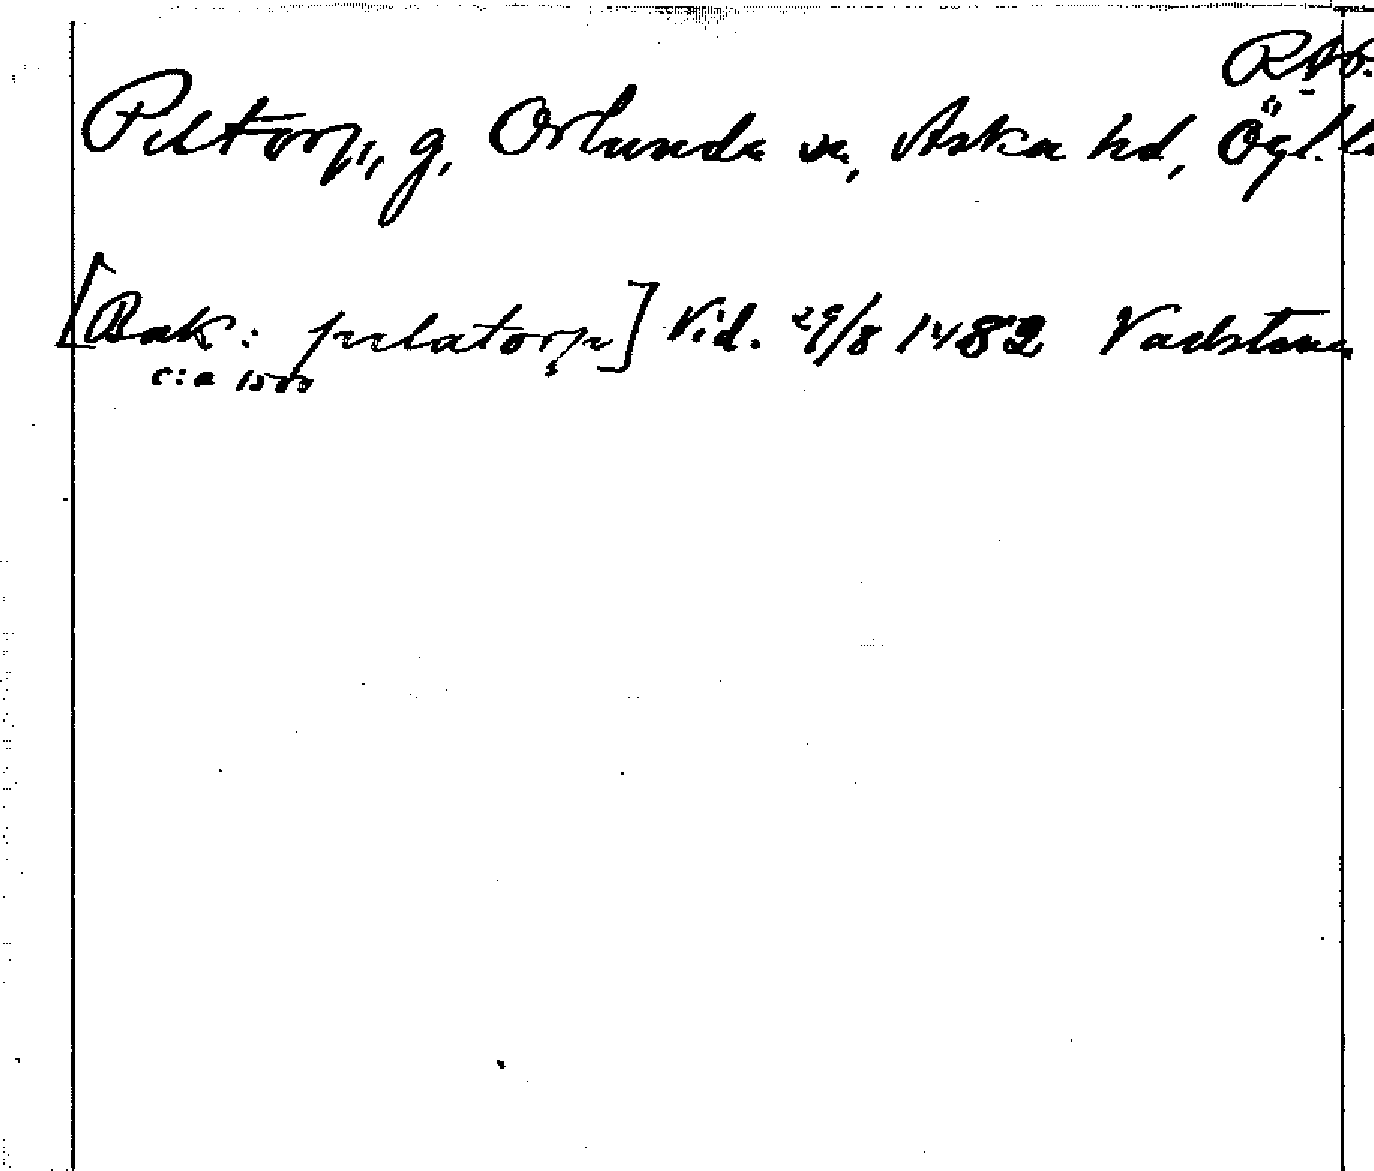 RAp.
Peltorp, g, Orlunda sn, Aska hd, Ögl. lä
[Bak: pælatorp] Vid. 29/8 1482 Vadstena
c:a 1500